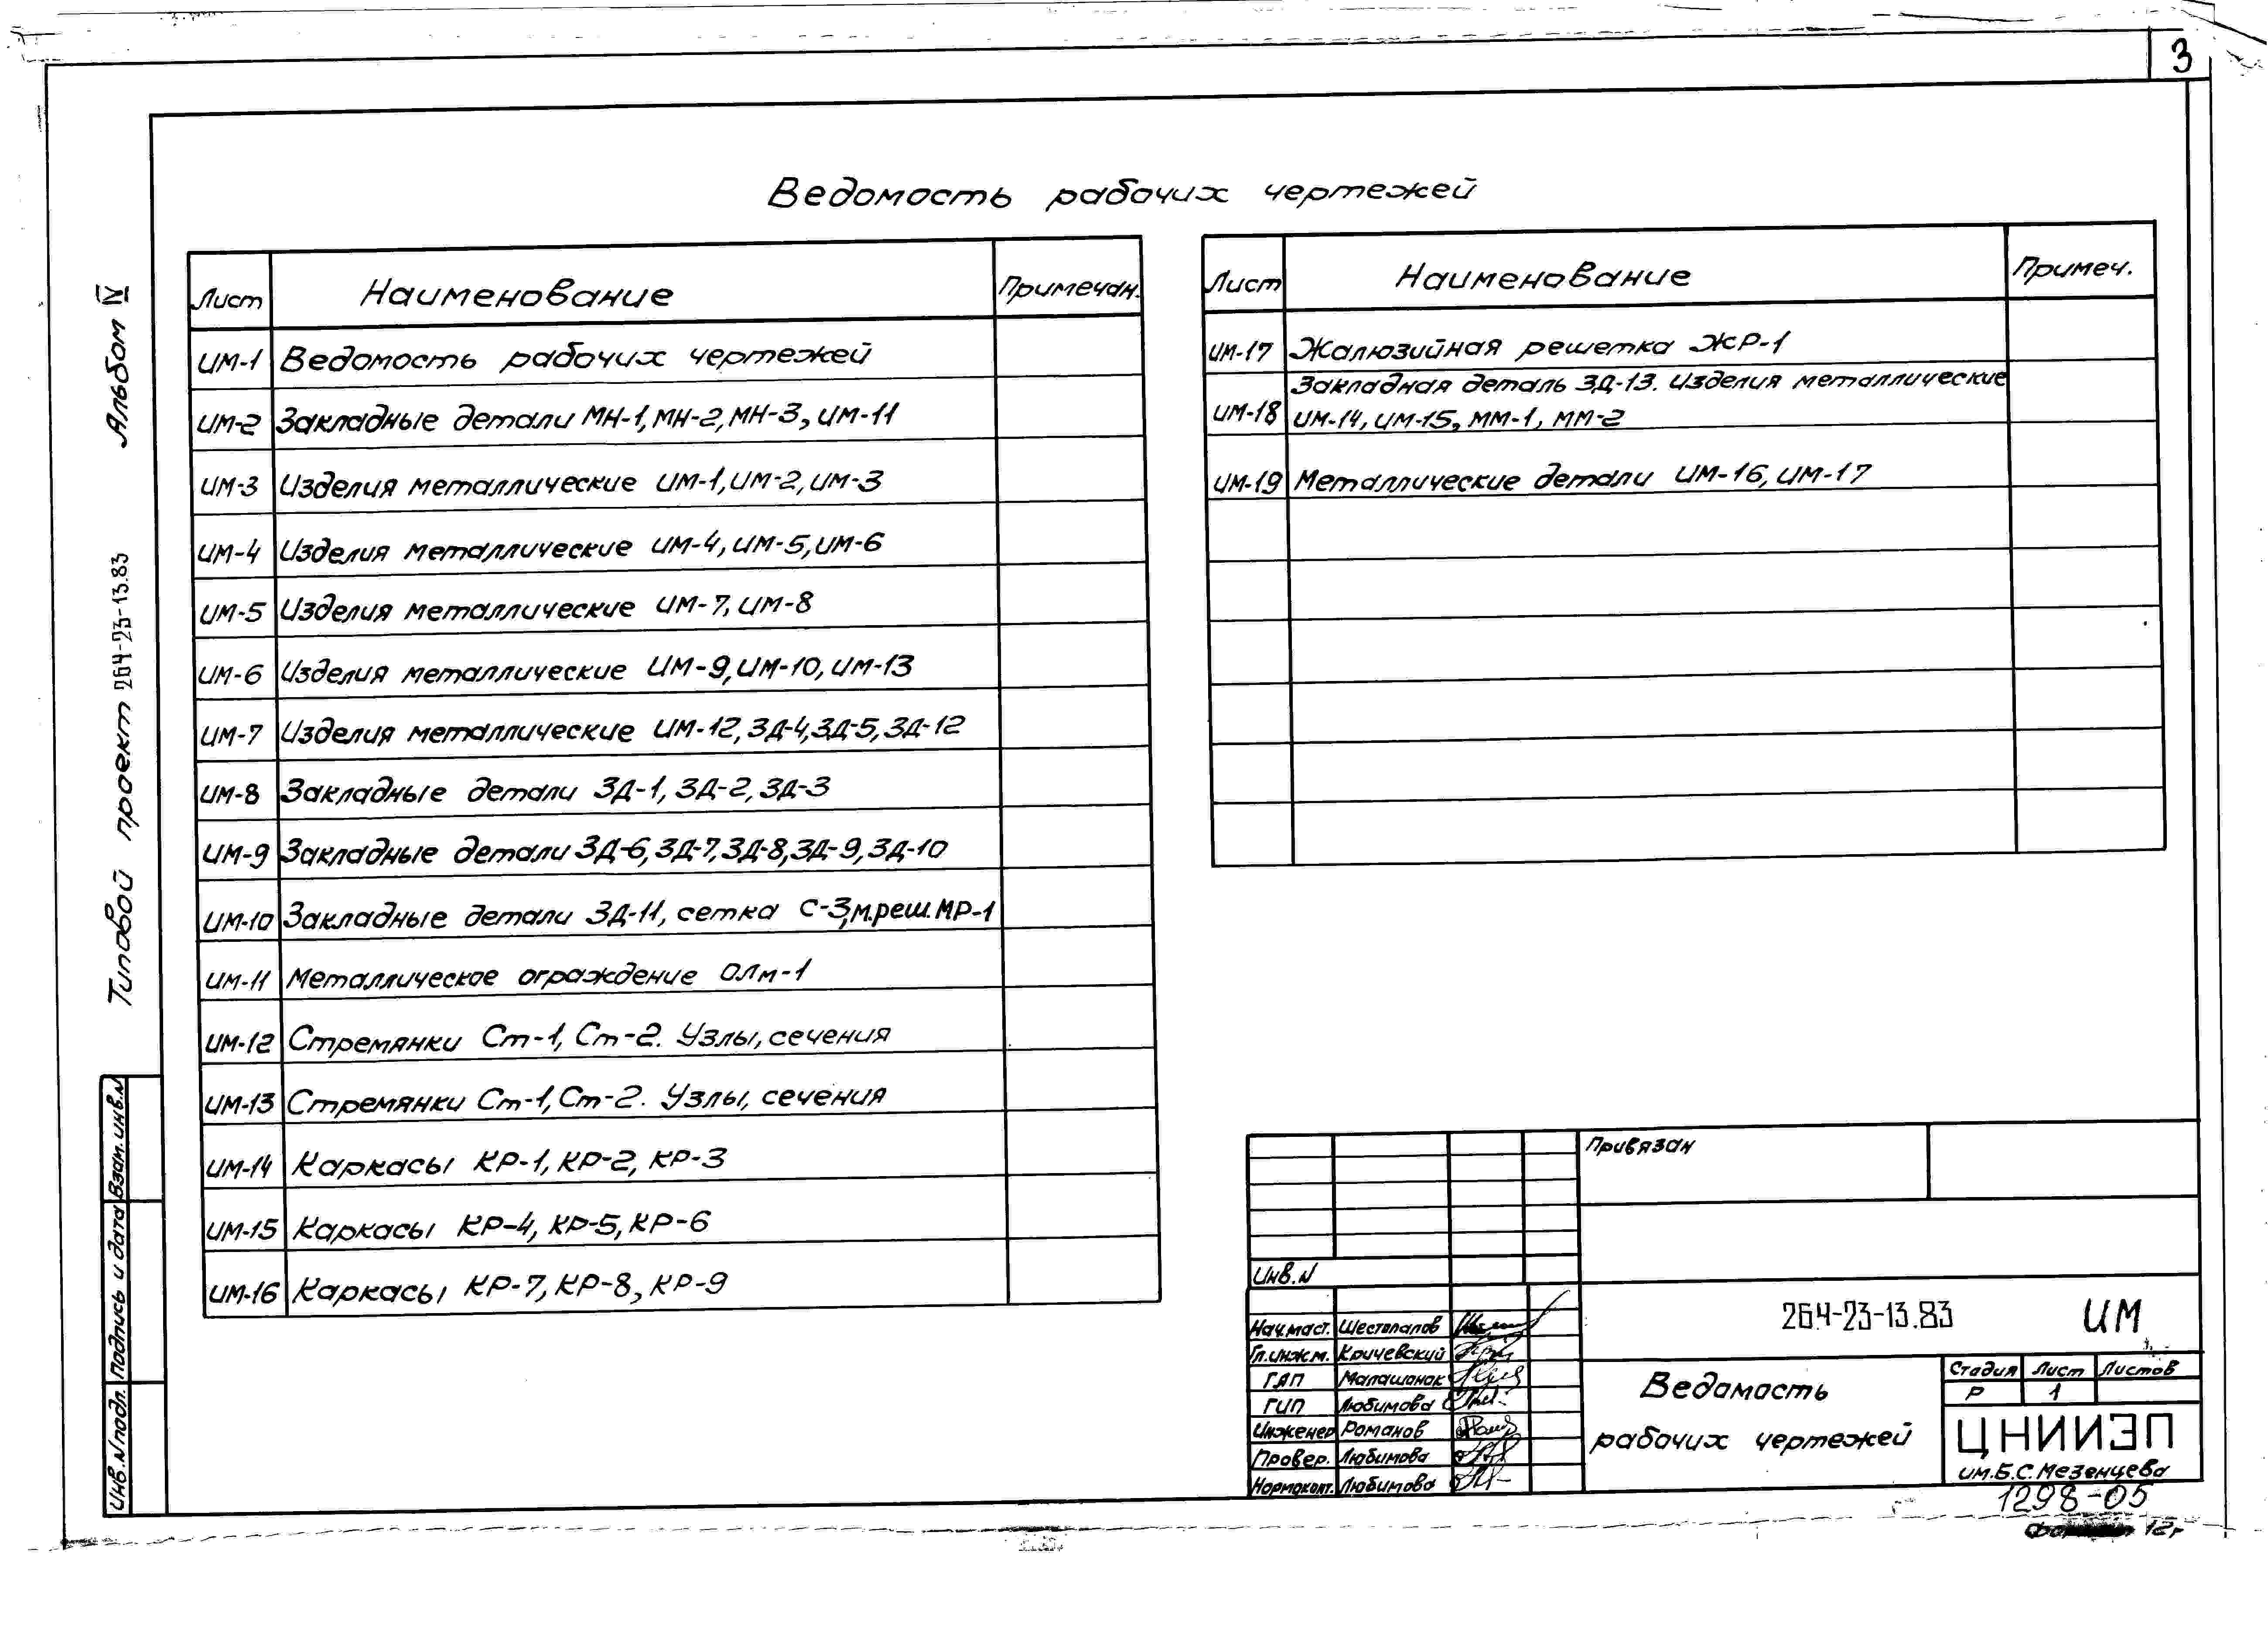 3
Ведомость рабочих чертежей
Лист Наименование Примечан.
ИМ-1 Ведомость рабочих чертежей
ИМ-2 Закладные детали МН-1, МН-2, МН-3, ИМ-11
ИМ-3 Изделия металлические ИМ-1, ИМ-2, ИМ-3
ИМ-4 Изделия металлические ИМ-4, ИМ-5, ИМ-6
ИМ-5 Изделия металлические ИМ-7, ИМ-8
ИМ-6 Изделия металлические ИМ-9, ИМ-10, ИМ-13
ИМ-7 Изделия металлические ИМ-12, ЗД-4, ЗД-5, ЗД-12
ИМ-8 Закладные детали ЗД-1, ЗД-2, ЗД-3
ИМ-9 Закладные детали ЗД-6, ЗД-7, ЗД-8, ЗД-9, ЗД-10
ИМ-10 Закладные детали ЗД-11, сетка С-3, м.реш. МР-1
ИМ-11 Металлическое ограждение ОЛм-1
ИМ-12 Стремянки Ст-1, Ст-2. Узлы, сечения
ИМ-13 Стремянки Ст-1, Ст-2. Узлы, сечения
ИМ-14 Каркасы КР-1, КР-2, КР-3
ИМ-15 Каркасы КР-4, КР-5, КР-6
ИМ-16 Каркасы КР-7, КР-8, КР-9
Лист Наименование Примеч.
ИМ-17 Жалюзийная решетка ЖР-1
ИМ-18 Закладная деталь ЗД-13. Изделия металлические
ИМ-14, ИМ-15, ММ-1, ММ-2
ИМ-19 Металлические детали ИМ-16, ИМ-17
Типовой проект 264-23-13.83 Альбом IV
Инв.N подл. Подпись и дата Взам.инв.N
Привязан
Инв.N
Нач.маст. Шестопалов
Гл.инж.м. Кричевский
ГАП Малашонок
ГИП Любимова
Инженер Романов
Провер. Любимова
Нормоконт. Любимова
264-23-13.83 ИМ
Ведомость
рабочих чертежей
Стадия Лист Листов
Р 1
ЦНИИЭП
им. Б.С. Мезенцева
1298-05
12г